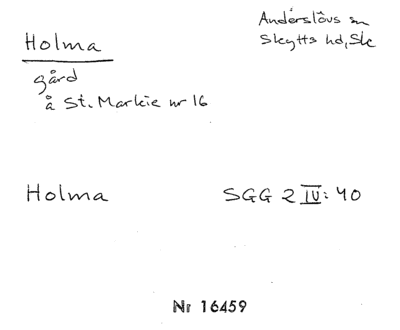 Holma
Anderslövs sn
Skytts hd, Sk
gård
å St. Markie nr 16
Holma SGG 2 IV: 40
Nr 16459